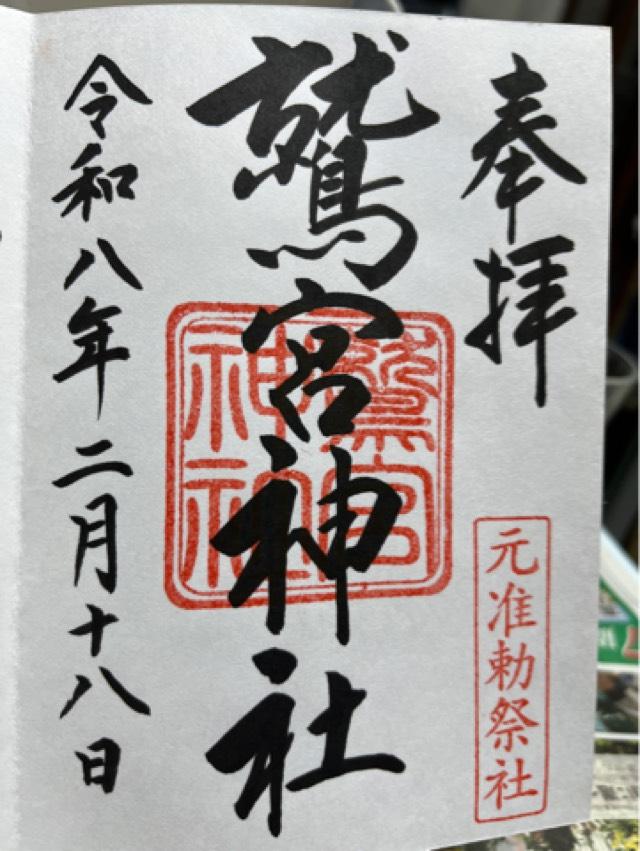 奉拝
元准勅祭社
鷲宮神社
鷲宮
神社
令和八年二月十八日